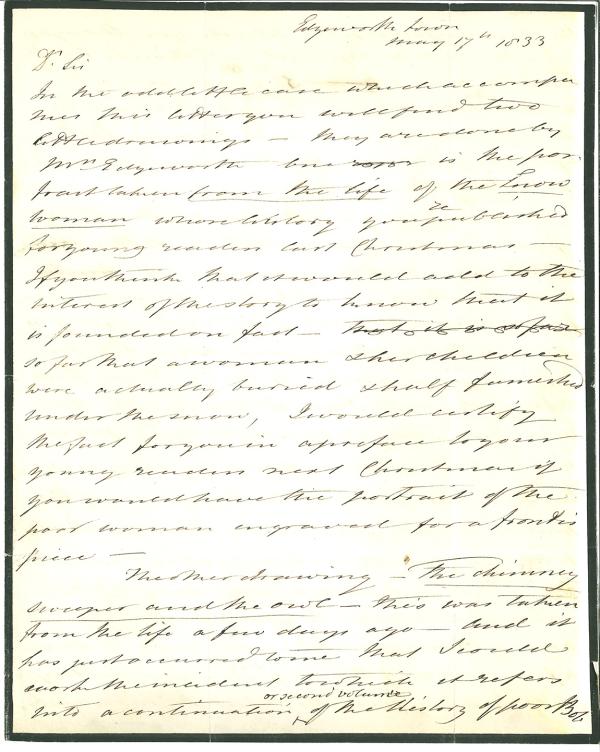 Edgeworth Town
May 17th 1833
Dr. Sir
In the odd little case which accompa
nies this letter you will find two
little drawings – they are done by
Mrs Edgeworth one is the por-
trait taken from the life of the Snow
woman whose history you republished
for young readers last Christmas –
If you think that it would add to the
interest of the story to know that it
is founded on fact – that it is so far
so far that a woman & her children
were actually buried & half famished
under the snow, I would certify
the fact for you in a preface to your
young readers next Christmas if
you would have the portrait of the
poor woman engraved for a frontis
piece –
The other drawing – The chimney
sweeper and the owl – this was taken
from the life a few days ago – and it
has just occurred to me that I could
work the incident to which it refers
or second volume
into a continuation of the History of poor Bob